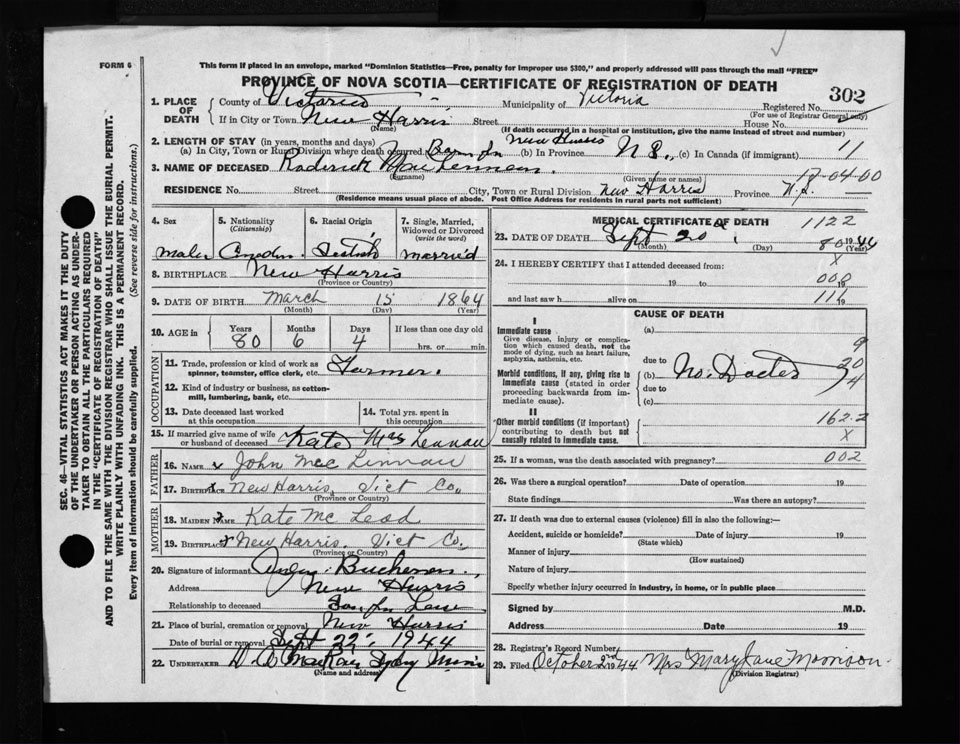 This form if placed in an envelope, marked "Dominion Statistics—Free, penalty for improper use $300," and properly addressed will pass through the mail "FREE"
FORM 6
PROVINCE OF NOVA SCOTIA—CERTIFICATE OF REGISTRATION OF DEATH
302
1. PLACE OF DEATH
County of Victoria Municipality of Victoria Registered No.
(For use of Registrar General only)
If in City or Town New Harris Street House No.
(Name) (If death occurred in a hospital or institution, give the name instead of street and number)
2. LENGTH OF STAY (in years, months and days) New Harris
(a) In City, Town or Rural Division where death occurred Born In (b) In Province N S. (c) In Canada (if immigrant) 11
3. NAME OF DECEASED Roderick MacLennan. 17-04-00
(Surname) (Given name or names)
RESIDENCE No. Street City, Town or Rural Division New Harris Province N.S.
(Residence means usual place of abode. Post Office Address for residents in rural parts not sufficient)
4. Sex 5. Nationality (Citizenship) 6. Racial Origin 7. Single, Married, Widowed or Divorced (write the word)
male married
8. BIRTHPLACE New Harris
(Province or Country)
9. DATE OF BIRTH March 15 1864
(Month) (Day) (Year)
10. AGE in Years Months Days If less than one day old
80 6 4 hrs. or min.
OCCUPATION
11. Trade, profession or kind of work as spinner, teamster, office clerk, etc. Farmer.
12. Kind of industry or business, as cotton-mill, lumbering, bank, etc.
13. Date deceased last worked at this occupation
14. Total yrs. spent in this occupation
15. If married give name of wife or husband of deceased Kate Mac Lennan
FATHER
16. NAME x John Mac Linnan
17. BIRTHPLACE x New Harris, Vict Co,
(Province or Country)
MOTHER
18. MAIDEN NAME Kate Mc Leod
19. BIRTHPLACE x New Harris. Vict Co.
(Province or Country)
20. Signature of informant
Address New Harris
Relationship to deceased Son In Law
21. Place of burial, cremation or removal New Harris
Date of burial or removal Sept 22, 1944
22. UNDERTAKER
(Name and address)
MEDICAL CERTIFICATE OF DEATH 1122
23. DATE OF DEATH Sept 20 1944
(Month) (Day) (Year)
80
24. I HEREBY CERTIFY that I attended deceased from: X
19 to 19
000
and last saw h alive on 19
111
CAUSE OF DEATH
I
Immediate cause
Give disease, injury or complication which caused death, not the mode of dying, such as heart failure, asphyxia, asthenia, etc.
(a)
due to
Morbid conditions, if any, giving rise to immediate cause (stated in order proceeding backwards from immediate cause).
(b) No. Docter
due to
(c)
9
30
4
II
Other morbid conditions (if important) contributing to death but not causally related to immediate cause.
162.2
X
25. If a woman, was the death associated with pregnancy? 002
26. Was there a surgical operation? Date of operation 19
State findings Was there an autopsy?
27. If death was due to external causes (violence) fill in also the following:—
Accident, suicide or homicide? Date of injury 19
(State which)
Manner of injury
(How sustained)
Nature of injury
Specify whether injury occurred in industry, in home, or in public place
Signed by M.D.
Address Date 19
28. Registrar's Record Number
29. Filed October 2nd 1944 Mrs Mary Jane Morrison
(Division Registrar)
SEC. 46—VITAL STATISTICS ACT MAKES IT THE DUTY OF THE UNDERTAKER OR PERSON ACTING AS UNDERTAKER TO OBTAIN ALL THE PARTICULARS REQUIRED IN THE "CERTIFICATE OF REGISTRATION OF DEATH" AND TO FILE THE SAME WITH THE DIVISION REGISTRAR WHO SHALL ISSUE THE BURIAL PERMIT.
WRITE PLAINLY WITH UNFADING INK. THIS IS A PERMANENT RECORD.
Every item of information should be carefully supplied. (See reverse side for instructions.)